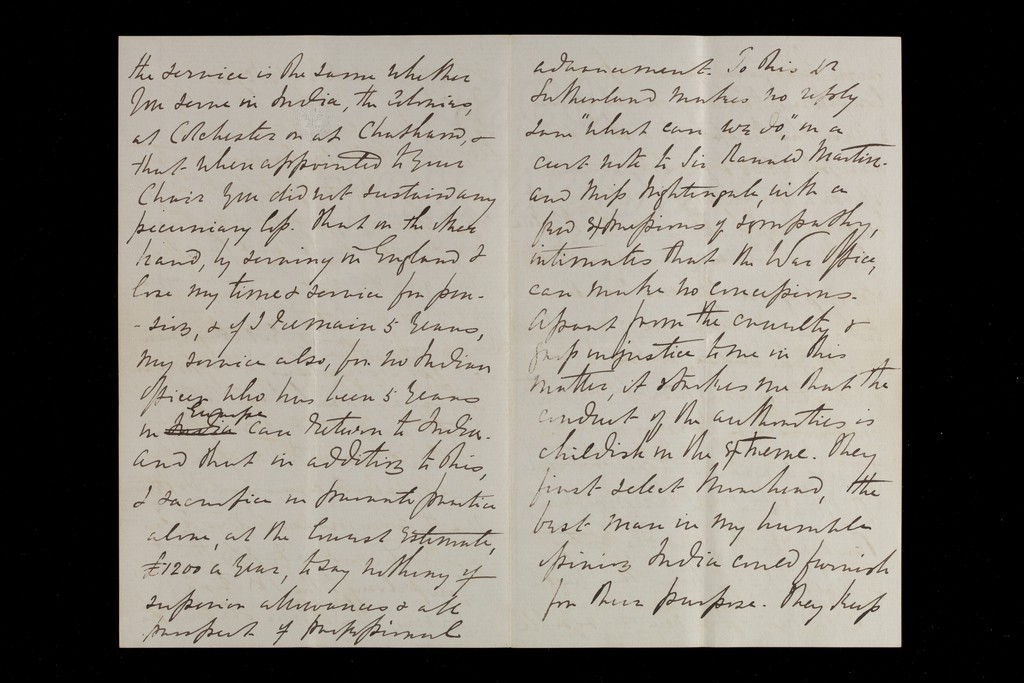 the service is the same whether
you serve in India, the Colonies,
at Colchester or at Chatham, &
that when appointed to your
Chair you did not sustain any
pecuniary loss. That on the other
hand, by serving in England I
lose my time & service for pen-
-sion, & if I remain 5 years,
my service also, for no Indian
Officer who has been 5 years
in India Europe can return to India.
and that in addition to this,
I sacrifice in private practice
alone, at the lowest estimate,
£1200 a year, to say nothing of
superior allowances & all
prospect of professional
advancement. To this Dr
Sutherland makes no reply
save "what can we do," in a
curt note to Sir Ranald Martin.
and Miss Nightingale, with a
few expressions of sympathy,
intimates that the War Office,
can make no concessions.
Apart from the cruelty &
gross injustice to me in this
matter, it strikes me that the
conduct of the authorities is
childish in the extreme. They
first select Morehead, the
best man in my humble
opinion India could furnish
for their purpose. They keep